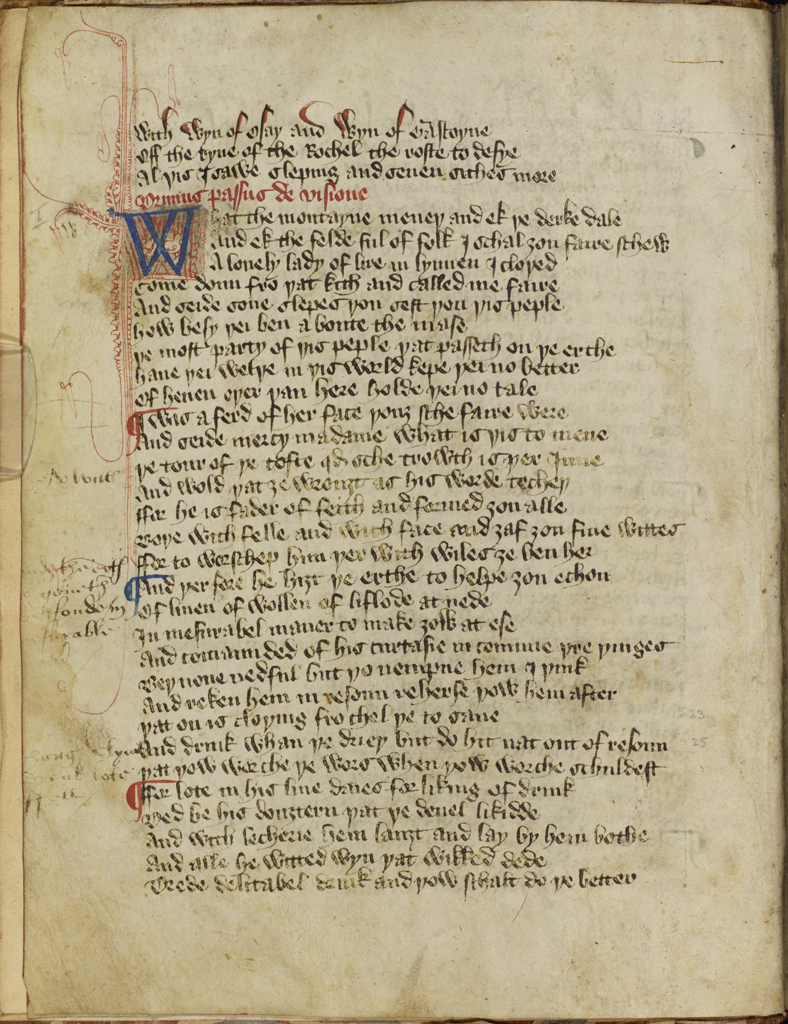 With Wyn of Osay and Wyn of Gascoyne
Off the ryne of the Rochel the roste to defye
Al þis I sawe sleping and seuen sithes more
Primus passus de visione
What the montayne meneþ and ek þe derke dale
And ek the felde ful of folk I schal ȝou faire schew
A louely lady of lire in lynnen I cloþed
Come doun fro þat kith and called me faire
And seide sone slepes þou sest þou þis peple
how besy þei ben a boute the mase
þe most party of þis peple þat passeth on þe erthe
haue þei welþe in þis world kepe þei no better
Of heuen oþer þan here holde þei no tale
I was a ferd of her face þouȝ sche faire were
And seide mercy madame what is þis to mene
þe tour of þe tofte qd sche trowth is þer Inne
And wold þat ȝe wrouȝt as his worde techeþ
ffor he is fader of feith and formed ȝou alle
Boþe with felle and with face and ȝaf ȝou fiue wittes
ffor to worschep him þer with wiles ȝe ben her
And þer fore he hiȝt þe erthe to helpe ȝou echon
Of linen of wollen of liflode at nede
In mesurabel maner to make ȝow at ese
And comaunded of his curtasie in comune þre þinges
Beþ none nedful but þo nempne hem I þink
And reken hem in resoun reherse þow hem after
þat on is cloþing fro chel þe to saue
And drink whan þe drieþ but do hit nat out of resoun
þat þow worche þe wors when þow worche schuldest
ffor lote in his liue daies for liking of drink
Ded be his douȝtern þat þe deuel likidde
And with lecherie hem lauȝt and lay by hem bothe
And alle he witted wyn þat wikked dede
Drede delitabel drink and þow schalt do þe better